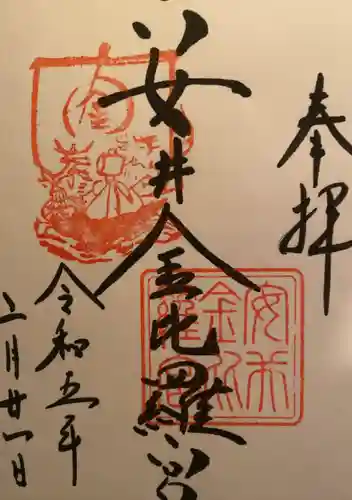 奉拝
安井金比羅宮
令和五年
二月廿一日